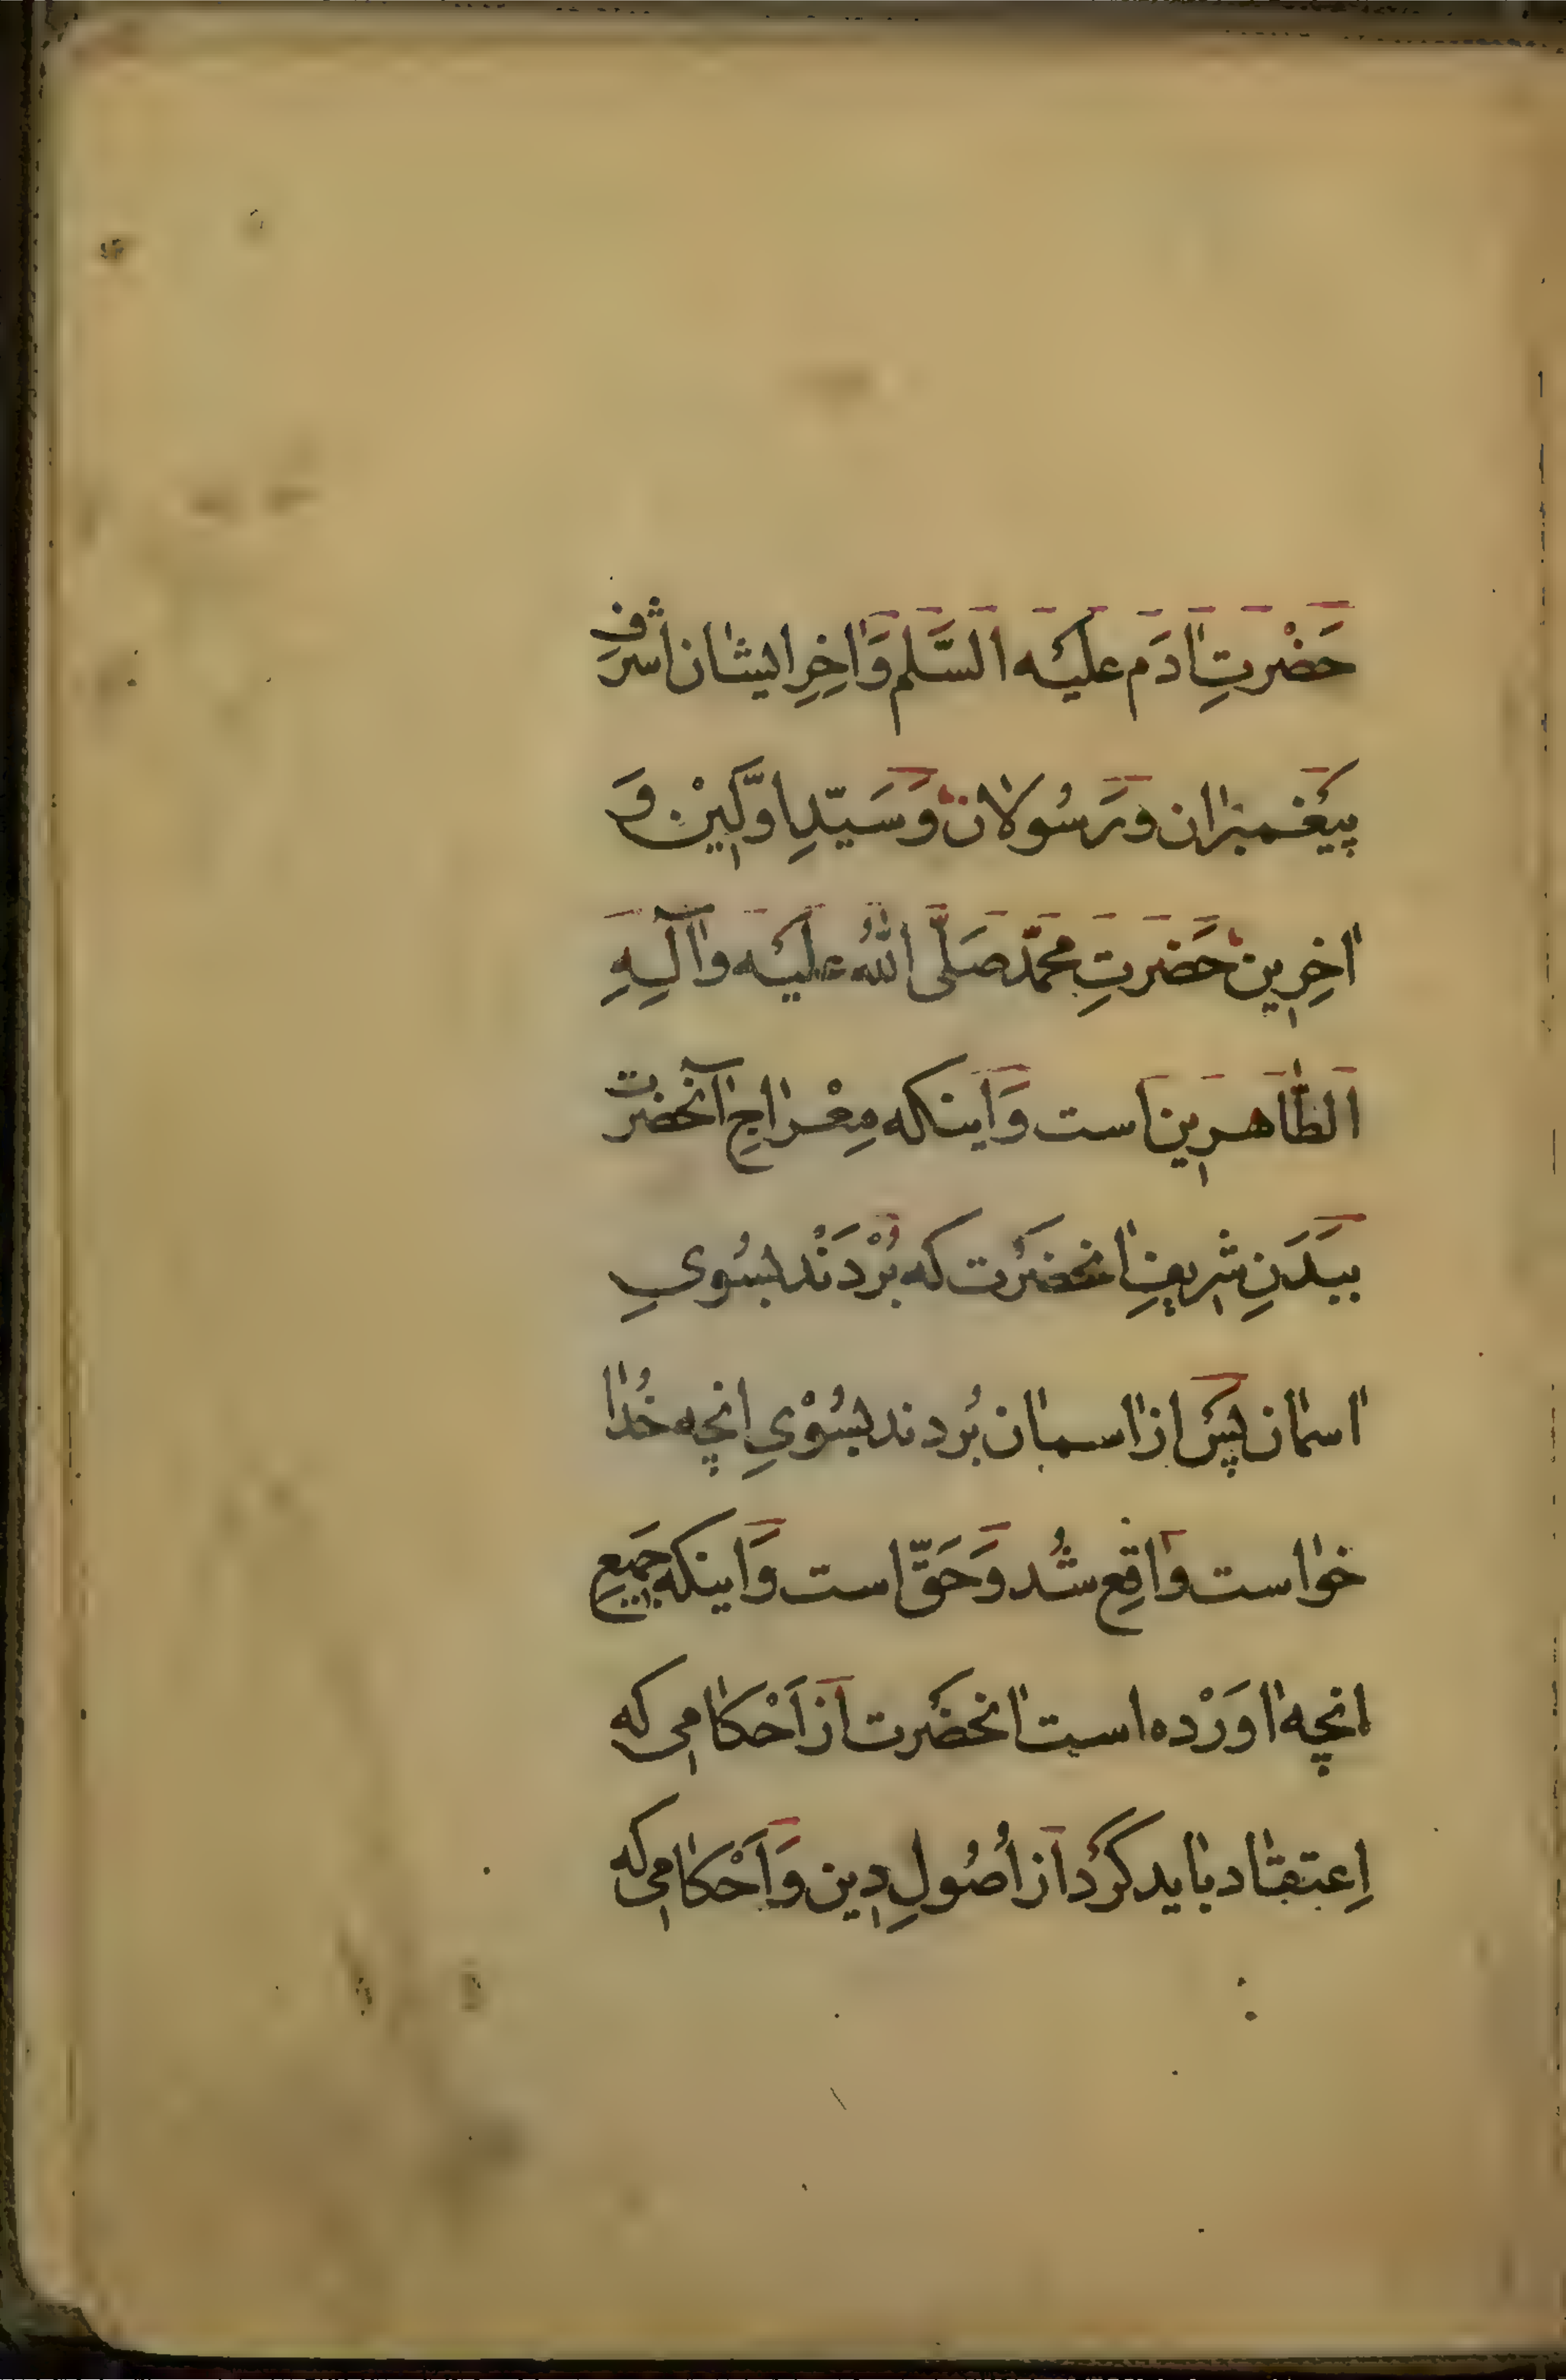 حَضْرتِ ادَم عليَه السَّلم وَاخِرِ ايشان اشرفِ
پيَغمبران و رَسُولان وَ سَيّدِ اوَّلِيْن وَ
اخِرِين حَضرتِ محمّد صَلّى اللهُ عليَه و آلِهِ
الطَّاهرِين است وَ اينكه مِعْراجِ آنحضرت
ببَدَنِ شرِيفِ انحضَرت كه بُرْدَنْد بسُوىِ
اسمان پَس از اسمان بُردند بسُوْىِ انچه خُدا
خواست واقِع شُد وَ حَقّ است وَ اينكه جَميعِ
انچه اوَرْده است انحضَرت از اَحْكامى كه
اِعتقاد بايد كَرد از اُصُولِ دِين وَ اَحْكامى كه